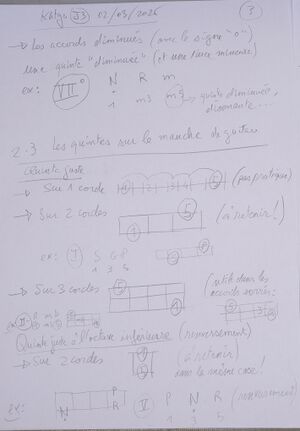 33 02/03/2026 3
→ Les accords diminués (avec le signe "o")
une quinte "diminuée" (et une tierce mineure)
ex: VII° N R m
1 m3 m5 → quinte diminuée,
dissonante...
2.3 Les quintes sur le manche de guitare
Quinte juste
→ Sur 1 corde 1 2 3 4 5 (pas pratique)
→ Sur 2 cordes 1 5 (à retenir!)
ex: I S G P
1 3 5
→ Sur 3 cordes 5 1 (utilisé dans les
accords serrés:
ex: II
Quinte juste à l'octave inférieure (renversement)
→ Sur 2 cordes 1 5 (à retenir)
dans la même case!
ex: N P R V P N R (renversement)
1 3 5